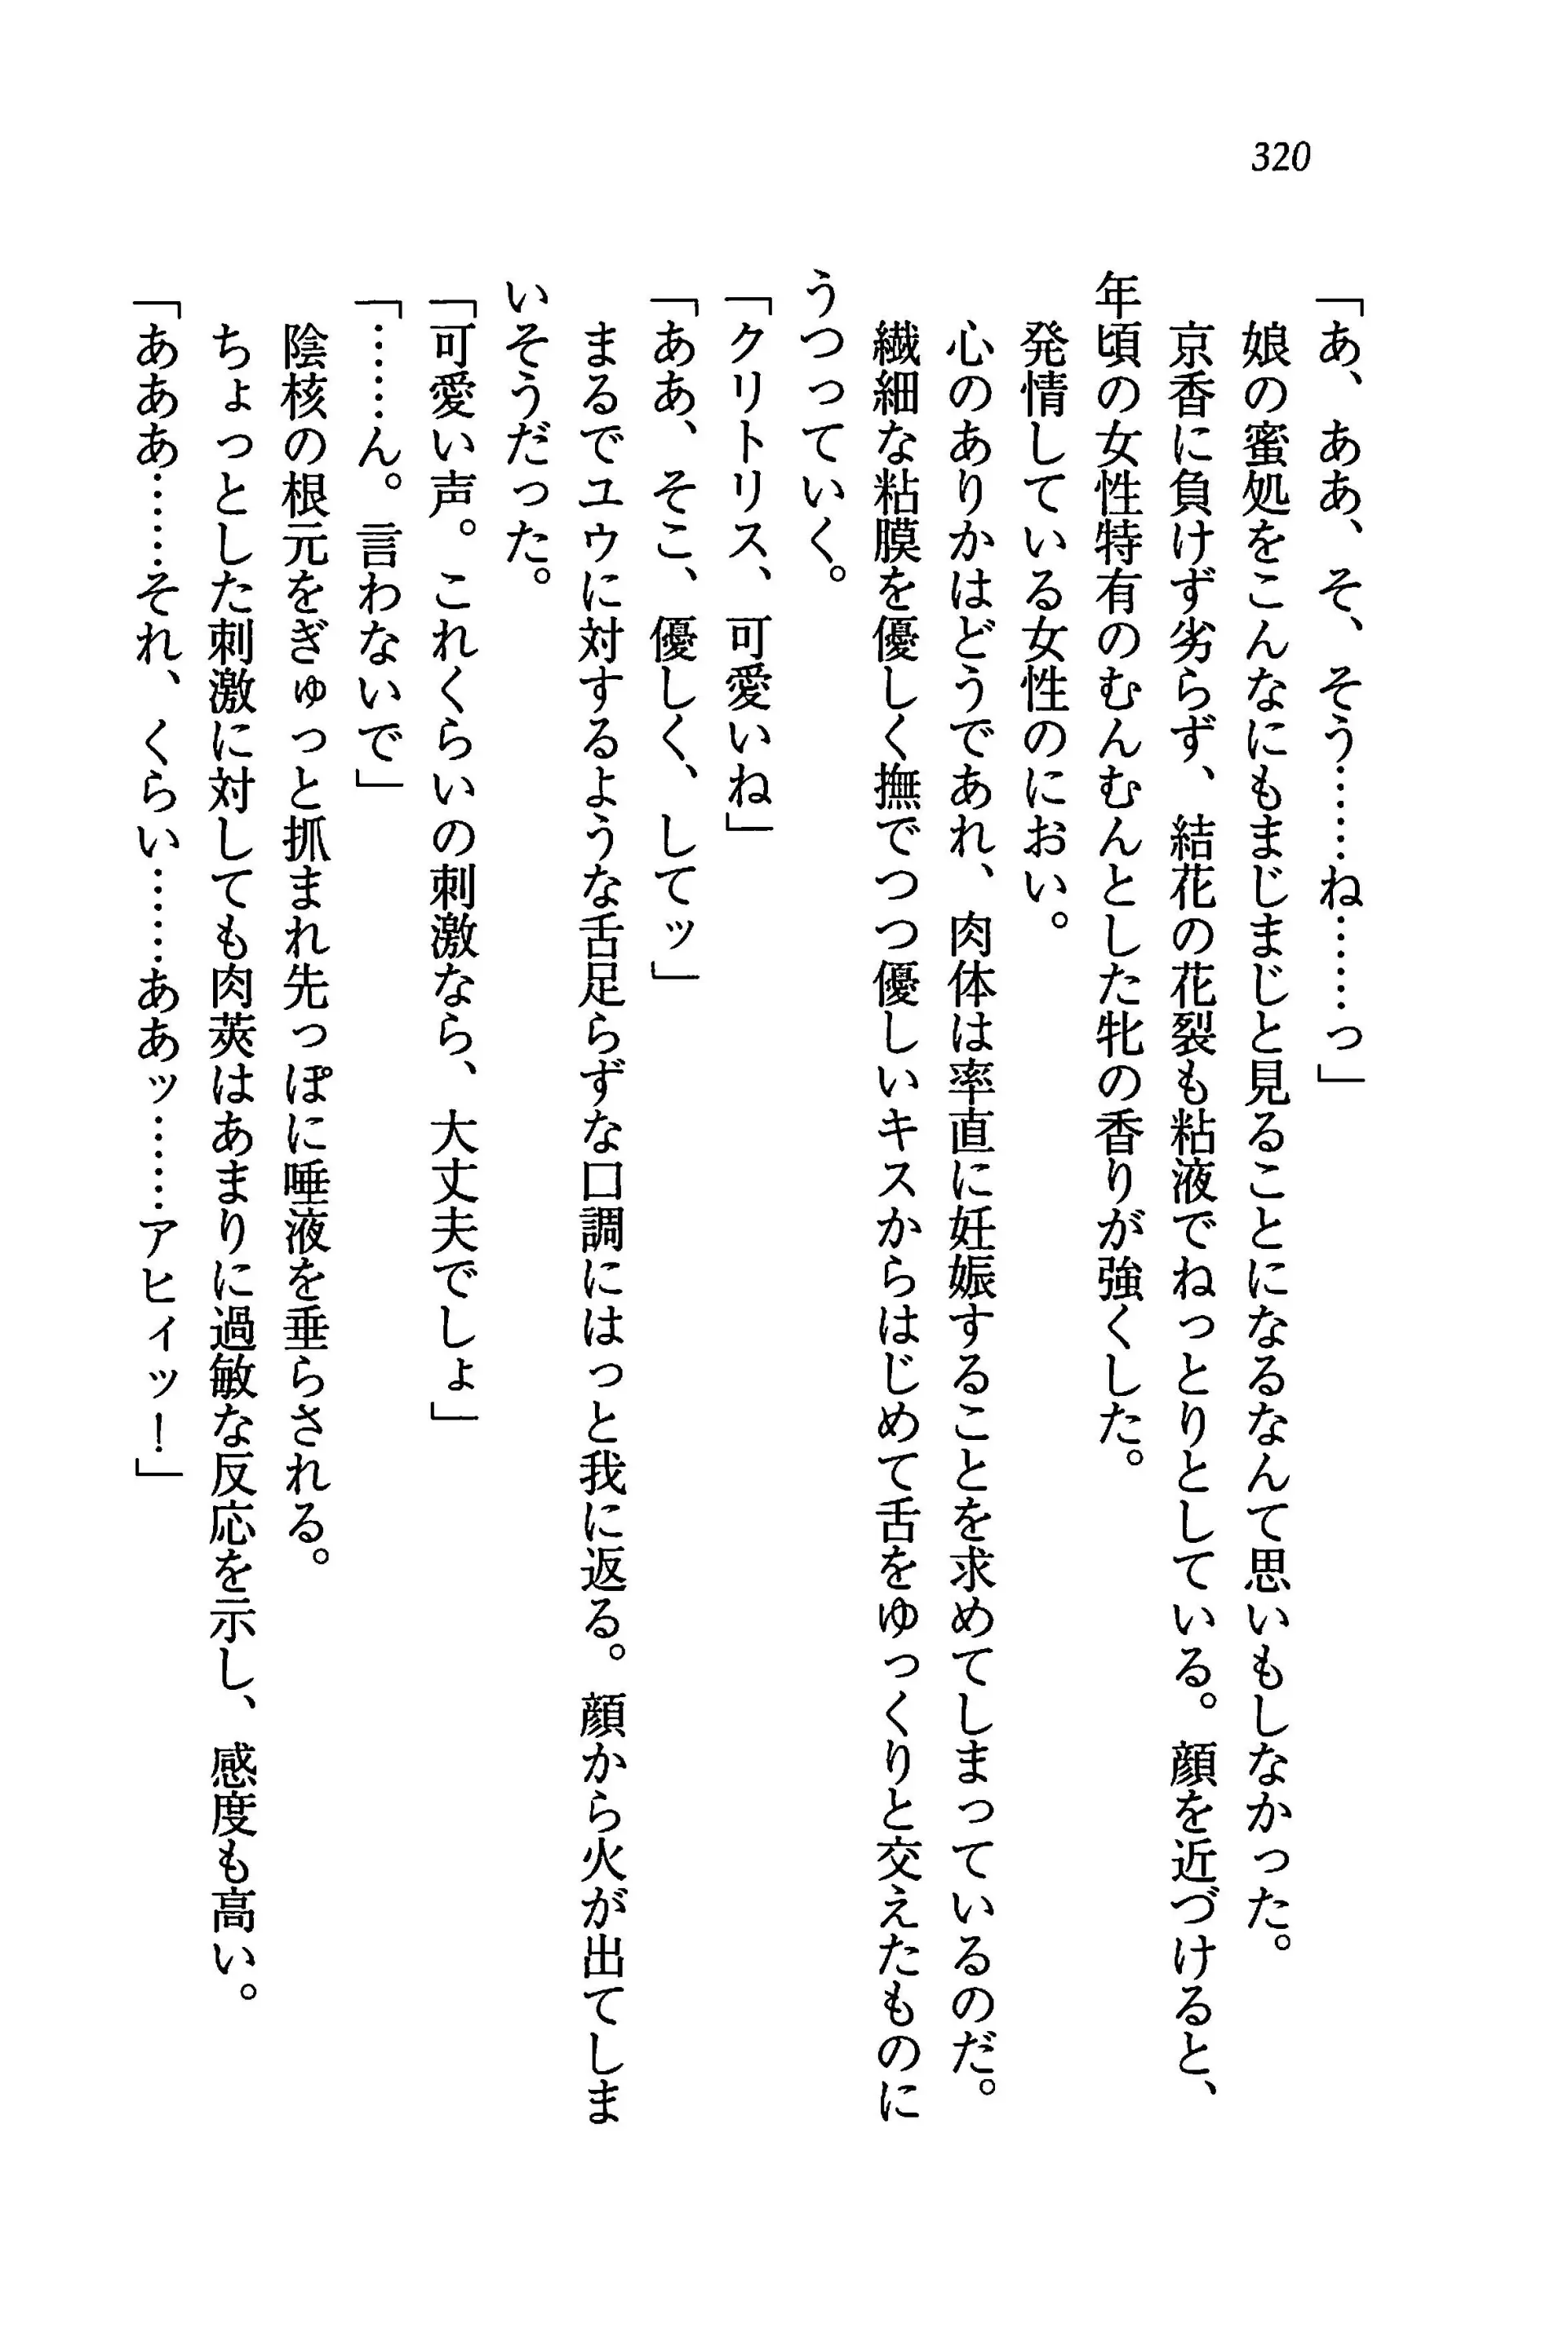 320
「あ、ああ、そ、そう……ね……っ」
娘の蜜処をこんなにもまじまじと見ることになるなんて思いもしなかった。
京香に負けず劣らず、結花の花裂も粘液でねっとりとしている。顔を近づけると、
年頃の女性特有のむんむんとした牝の香りが強くした。
発情している女性のにおい。
心のありかはどうであれ、肉体は率直に妊娠することを求めてしまっているのだ。
繊細な粘膜を優しく撫でつつ優しいキスからはじめて舌をゆっくりと交えたものに
うつっていく。
「クリトリス、可愛いね」
「ああ、そこ、優しく、してッ」
まるでユウに対するような舌足らずな口調にはっと我に返る。顔から火が出てしま
いそうだった。
「可愛い声。これくらいの刺激なら、大丈夫でしょ」
「……ん。言わないで」
陰核の根元をぎゅっと抓まれ先っぽに唾液を垂らされる。
ちょっとした刺激に対しても肉莢はあまりに過敏な反応を示し、感度も高い。
「あああ……それ、くらい……ああッ……アヒィッ！」